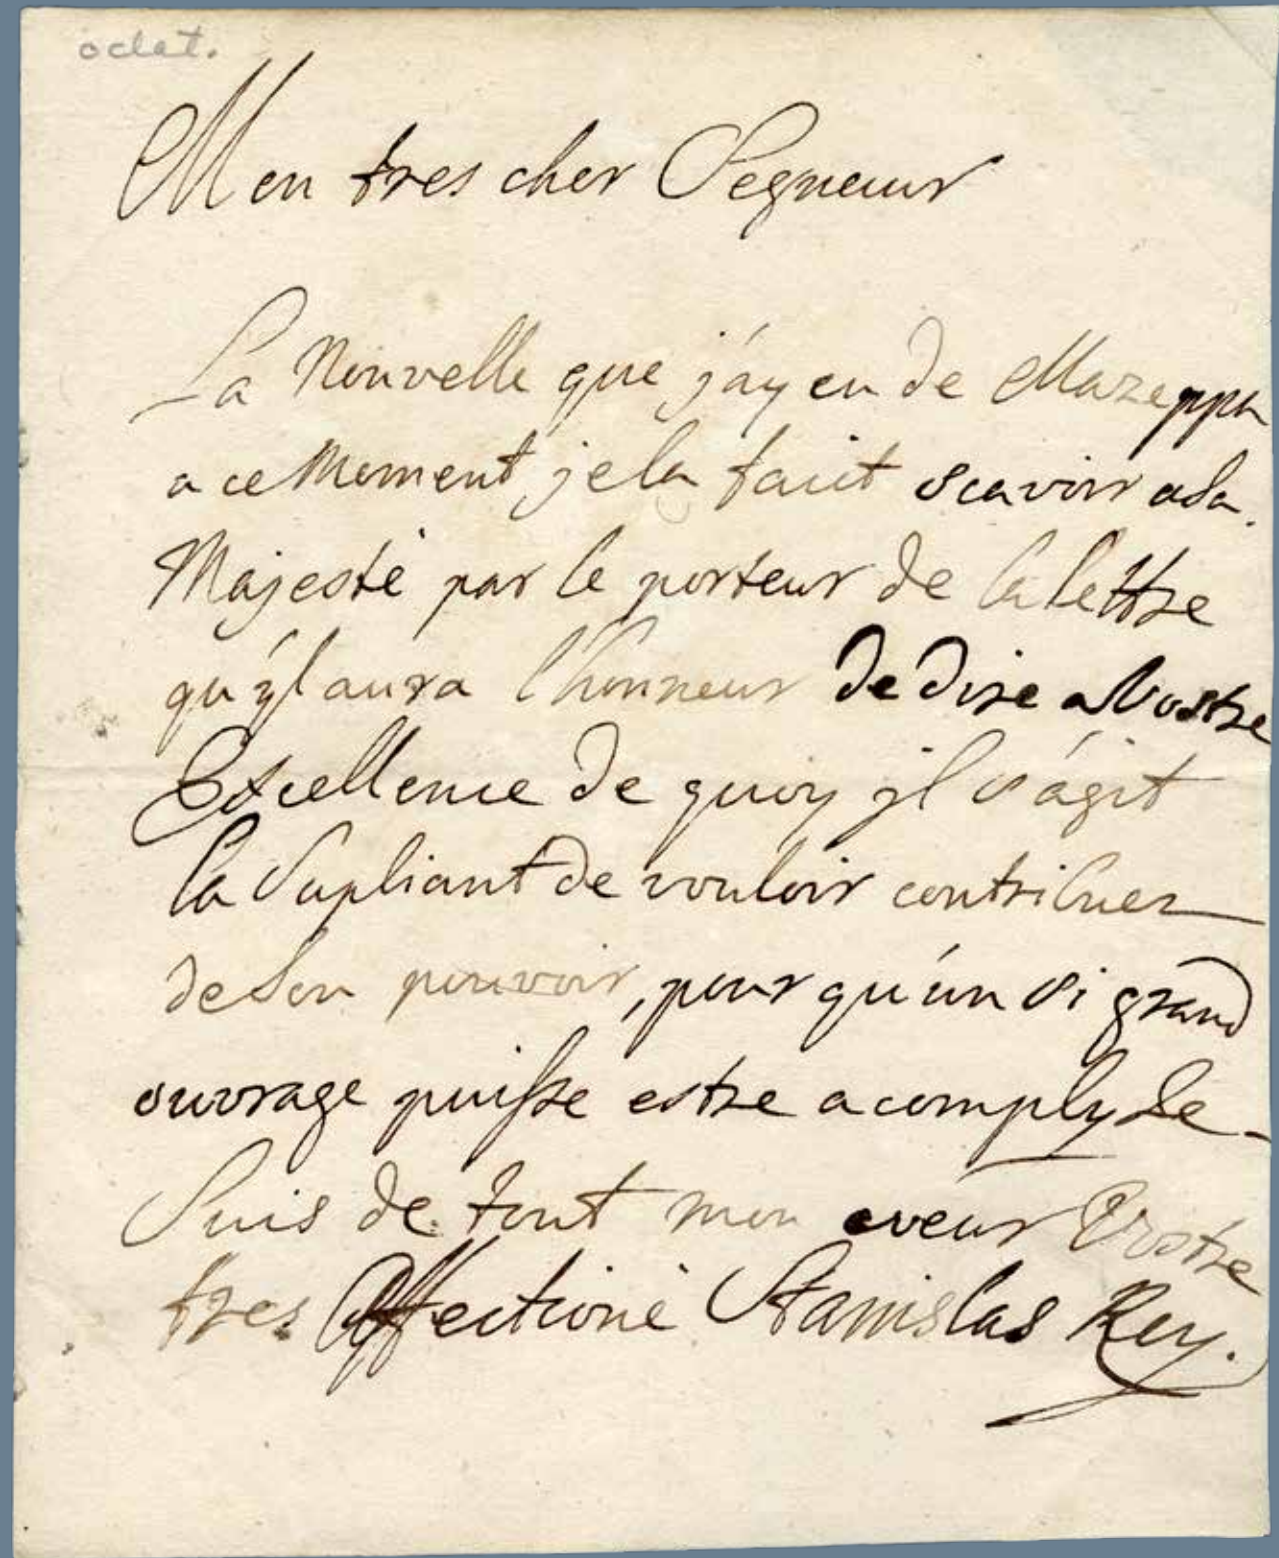 odat.
Mon tres cher Segneur
La Nouvelle que j'ay eu de Mazeppa
a ce Moment je la faict scavoir a Sa
Majesté par le porteur de la lettre
qu'jl aura l'honneur de dire a Vostre
Excellence de quoy jl s'agit
la Supliant de vouloir contribuer
de Son pouvoir, pour qu'un si grand
ouvrage puisse estre acomply Je
Suis de tout mon coeur Vostre
tres Affectioné Stanislas Roy.